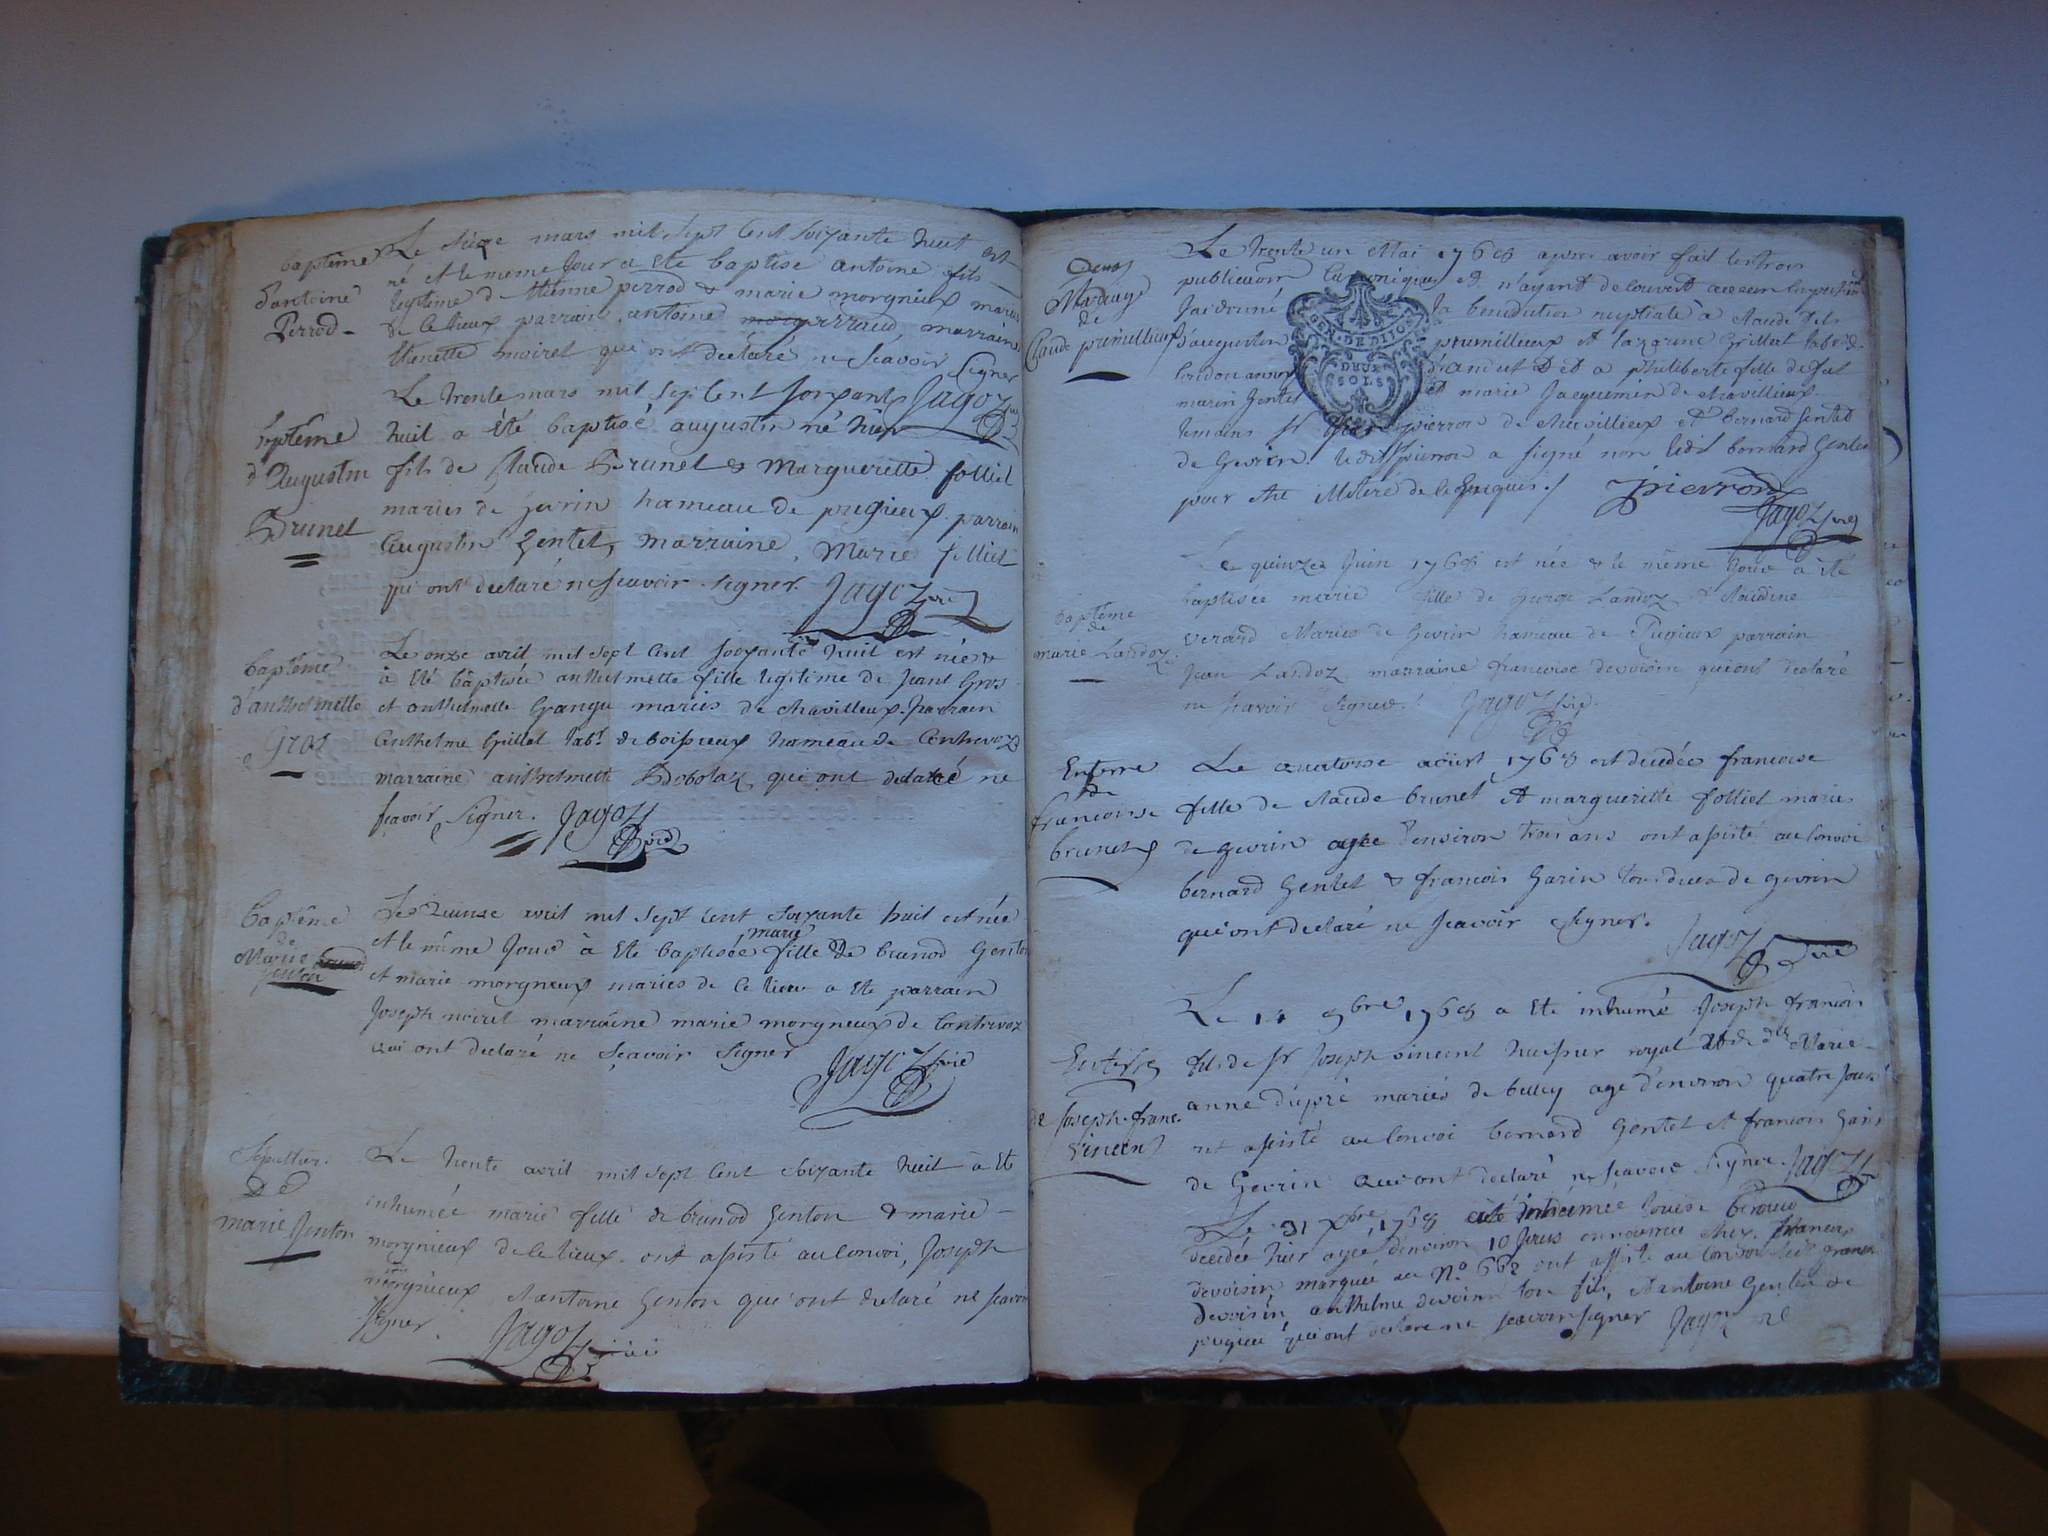 baptême
d'antoine
Perrod
Le seize mars mil sept cent soixante huit est
né et le meme jour a ete baptisé antoine fils
legitime d'Etienne perrod & marie morgnieux mariés
de ce lieux parrain antoine perraud marraine
Etienette moiret qui ont declaré ne scavoir signer
Jagoz
baptême
d'Augustin
Brunet
Le trente mars mil sept cent soixante
huit a été baptisé augustin né hier
fils de Claude Brunet & Margueritte folliet
mariés de Gevrin hameau de pugieux parrain
augustin Gentet, marraine, Marie folliet
qui ont declaré ne scavoir signer. Jagoz
baptême
d'anthelmette
Gros
Le onze avril mil sept cent soixante huit est née &
à été baptisée anthelmette fille legitime de Jean Gros
et anthelmette Grange mariés de chavilleux. parrain
anthelme Grillet lab.r de boissieux hameau de Contrevoz
marraine anthelmette qui ont declaré ne
scavoir signer. Jagoz
baptême
de
Marie
Genton
Le quinze avril mil sept cent soixante huit est née
et le même jour à ete baptisée marie fille de brunod Genton
et marie morgneux mariés de ce lieu a ete parrain
Joseph moiret marraine marie morgneux de Contrevoz
qui ont declaré ne sçavoir signer Jagoz
Sepultur.
De
marie Genton
Le trente avril mil sept cent soixante huit à ete
inhumée marie fille de brunod Genton & marie
morgnieux de ce lieux. ont assisté au convoi, Joseph
morgnieux & antoine Genton qui ont declaré ne scavoir
signer. Jagoz
Mariage
de
Claude premillieux
GEN. DE DIJON
DEUX
SOLS
Le trente un Mai 1768 apres avoir fait les trois
publication canonique et n'ayant decouvert aucun
J'ai donné la benediction nuptiale à claude fils
d'augustin premillieux et lazarine Grillet
d'andert & et a philiberte fille de
marin Gentet et marie Jacquemin de chavillieux
temoins Sr pierron de chavillieux et bernard Gentet
de Gevrin. ledit pierron a signé non ledit bernard Gentet
pour etre illiteré de ce requis. / pierron
Jagoz
baptême
de
marie Landoz
Le quinze Juin 1768 est née & le même jour a été
baptisée marie fille de george Landoz & claudine
verard mariés de Gevrin hameau de Pugieux parrain
Jean Landoz marraine francoise devoisin qui ont declaré
ne scavoir signer. Jagoz
Enterre
de
francoise
brunet
Le quatorse aoust 1768 est decedée francoise
fille de claude brunet et margueritte folliet mariés
de gevrin agée d'environ trois ans ont assisté au convoi
bernard Gentet & francois Garin tous deux de gevrin
qui ont declaré ne scavoir signer.
Jagoz
Enterre
de Joseph franc.
Vincent
Le 9bre 1768 a ete inhumé Joseph francois
fils de Sr Joseph vincent huissier royal & de dlle Marie
anne dupré mariés de belley agé d'environ quatre jours
ont assisté au convoi bernard Gentet et francois Garin
de Gevrin qui ont declaré ne scavoir signer. Jagoz
Le 31 Xbre 1768 a été inhumée louise
decedée hier agée d'environ 10 jours en nourrice chez francois
devoisin marquée au No. 662 ont assist. au convoi led. francois
devoisin, anthelme devoisin son fils, & antoine Gentet de
pugieu, qui ont declaré ne scavoir signer Jagoz